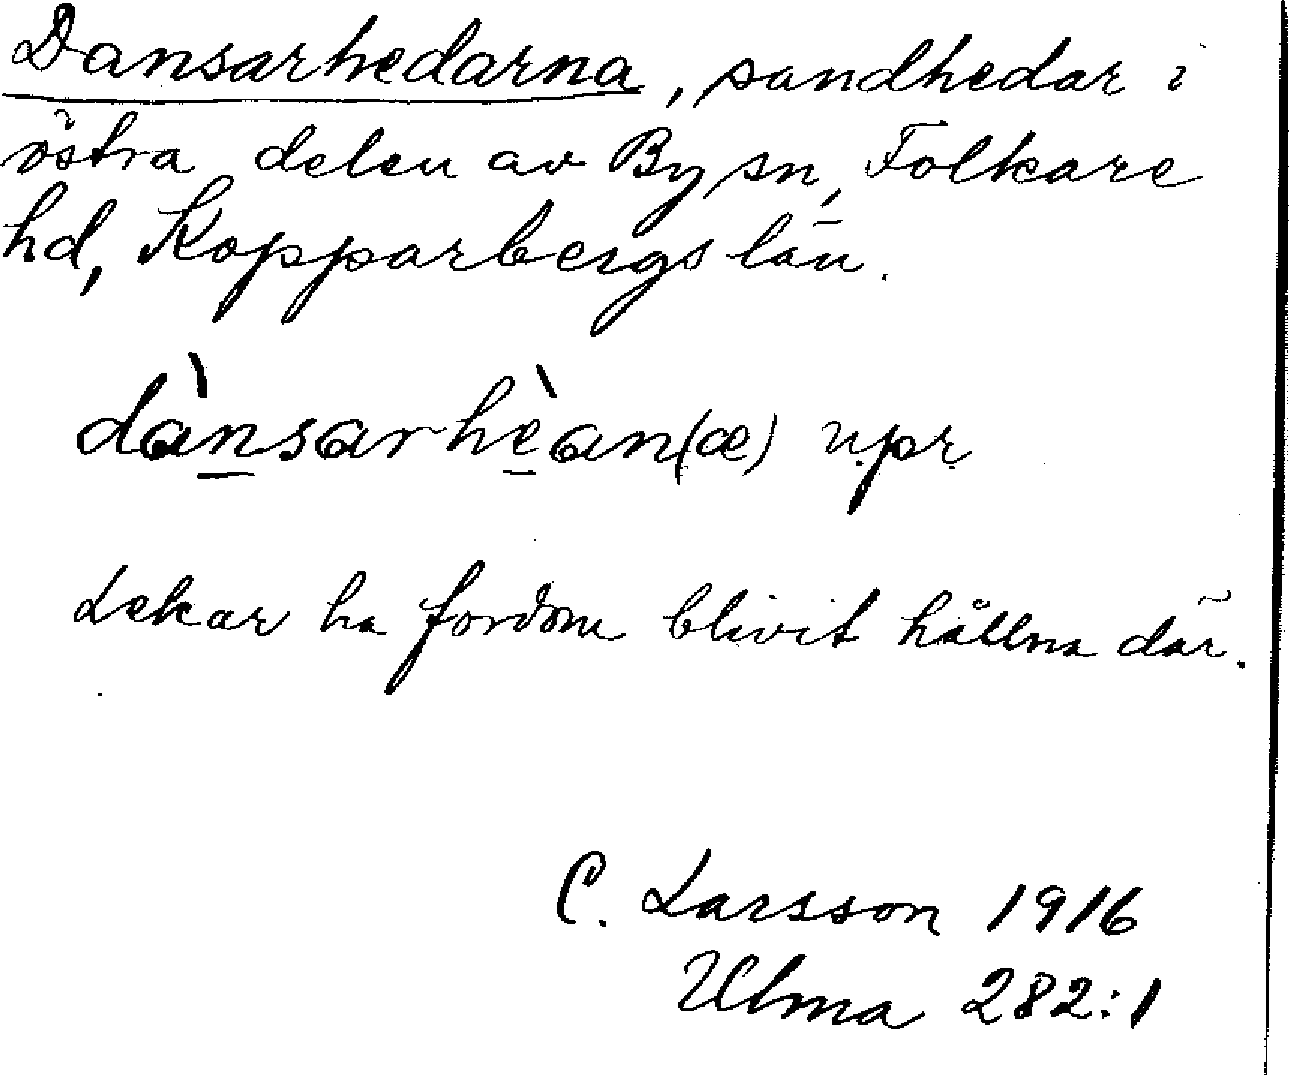 Dansarhedarna, sandhedar i
östra delen av By sn, Folkare
hd, Kopparbergs län.
dànsarhèan(æ) u.pr.
Lekar ha fordom blivit hållna där.
C. Larsson 1916
Ulma 282:1